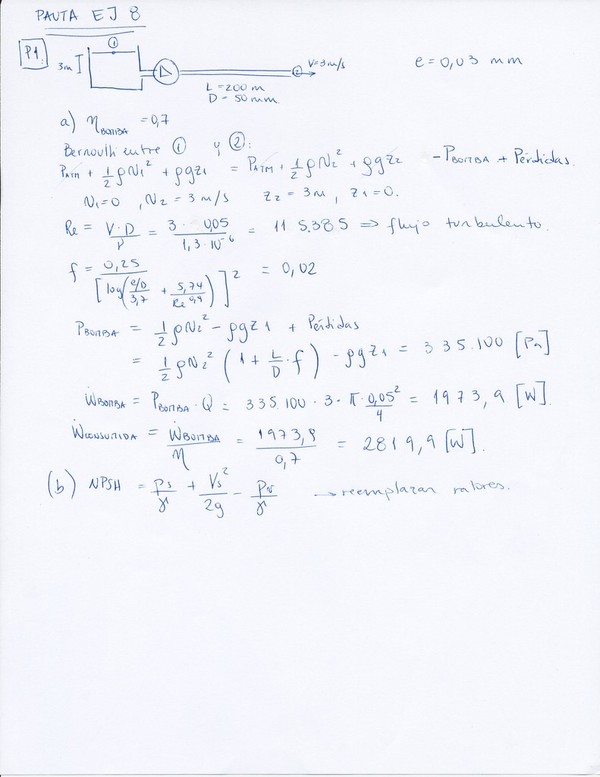 PAUTA EJ 8
P1.
①
3m
② V=3m/s
e = 0,03 mm
L = 200 m
D = 50 mm.
a) η_BOMBA = 0,7
Bernoulli entre ① y ②:
P_ATM + 1/2 ρV₁² + ρgz₁ = P_ATM + 1/2 ρV₂² + ρgz₂ - P_BOMBA + Pérdidas.
V₁=0, V₂ = 3 m/s z₂ = 3m, z₁=0.
Re = V·D/ν = 3 · 0,05/1,3·10⁻⁶ = 115.385 ⇒ flujo turbulento.
f = 0,25/[log((e/D)/3,7 + 5,74/Re^0,9)]² = 0,02
P_BOMBA = 1/2 ρV₂² - ρgz₁ + Pérdidas
= 1/2 ρV₂² (1 + L/D · f) - ρgz₁ = 335.100 [Pa]
Ẇ_BOMBA = P_BOMBA · Q = 335.100 · 3 · π · 0,05²/4 = 1973,9 [W].
Ẇ_CONSUMIDA = Ẇ_BOMBA/η = 1973,9/0,7 = 2819,9 [W].
(b) NPSH = Ps/γ + Vs²/2g - Pv/γ → reemplazar valores.